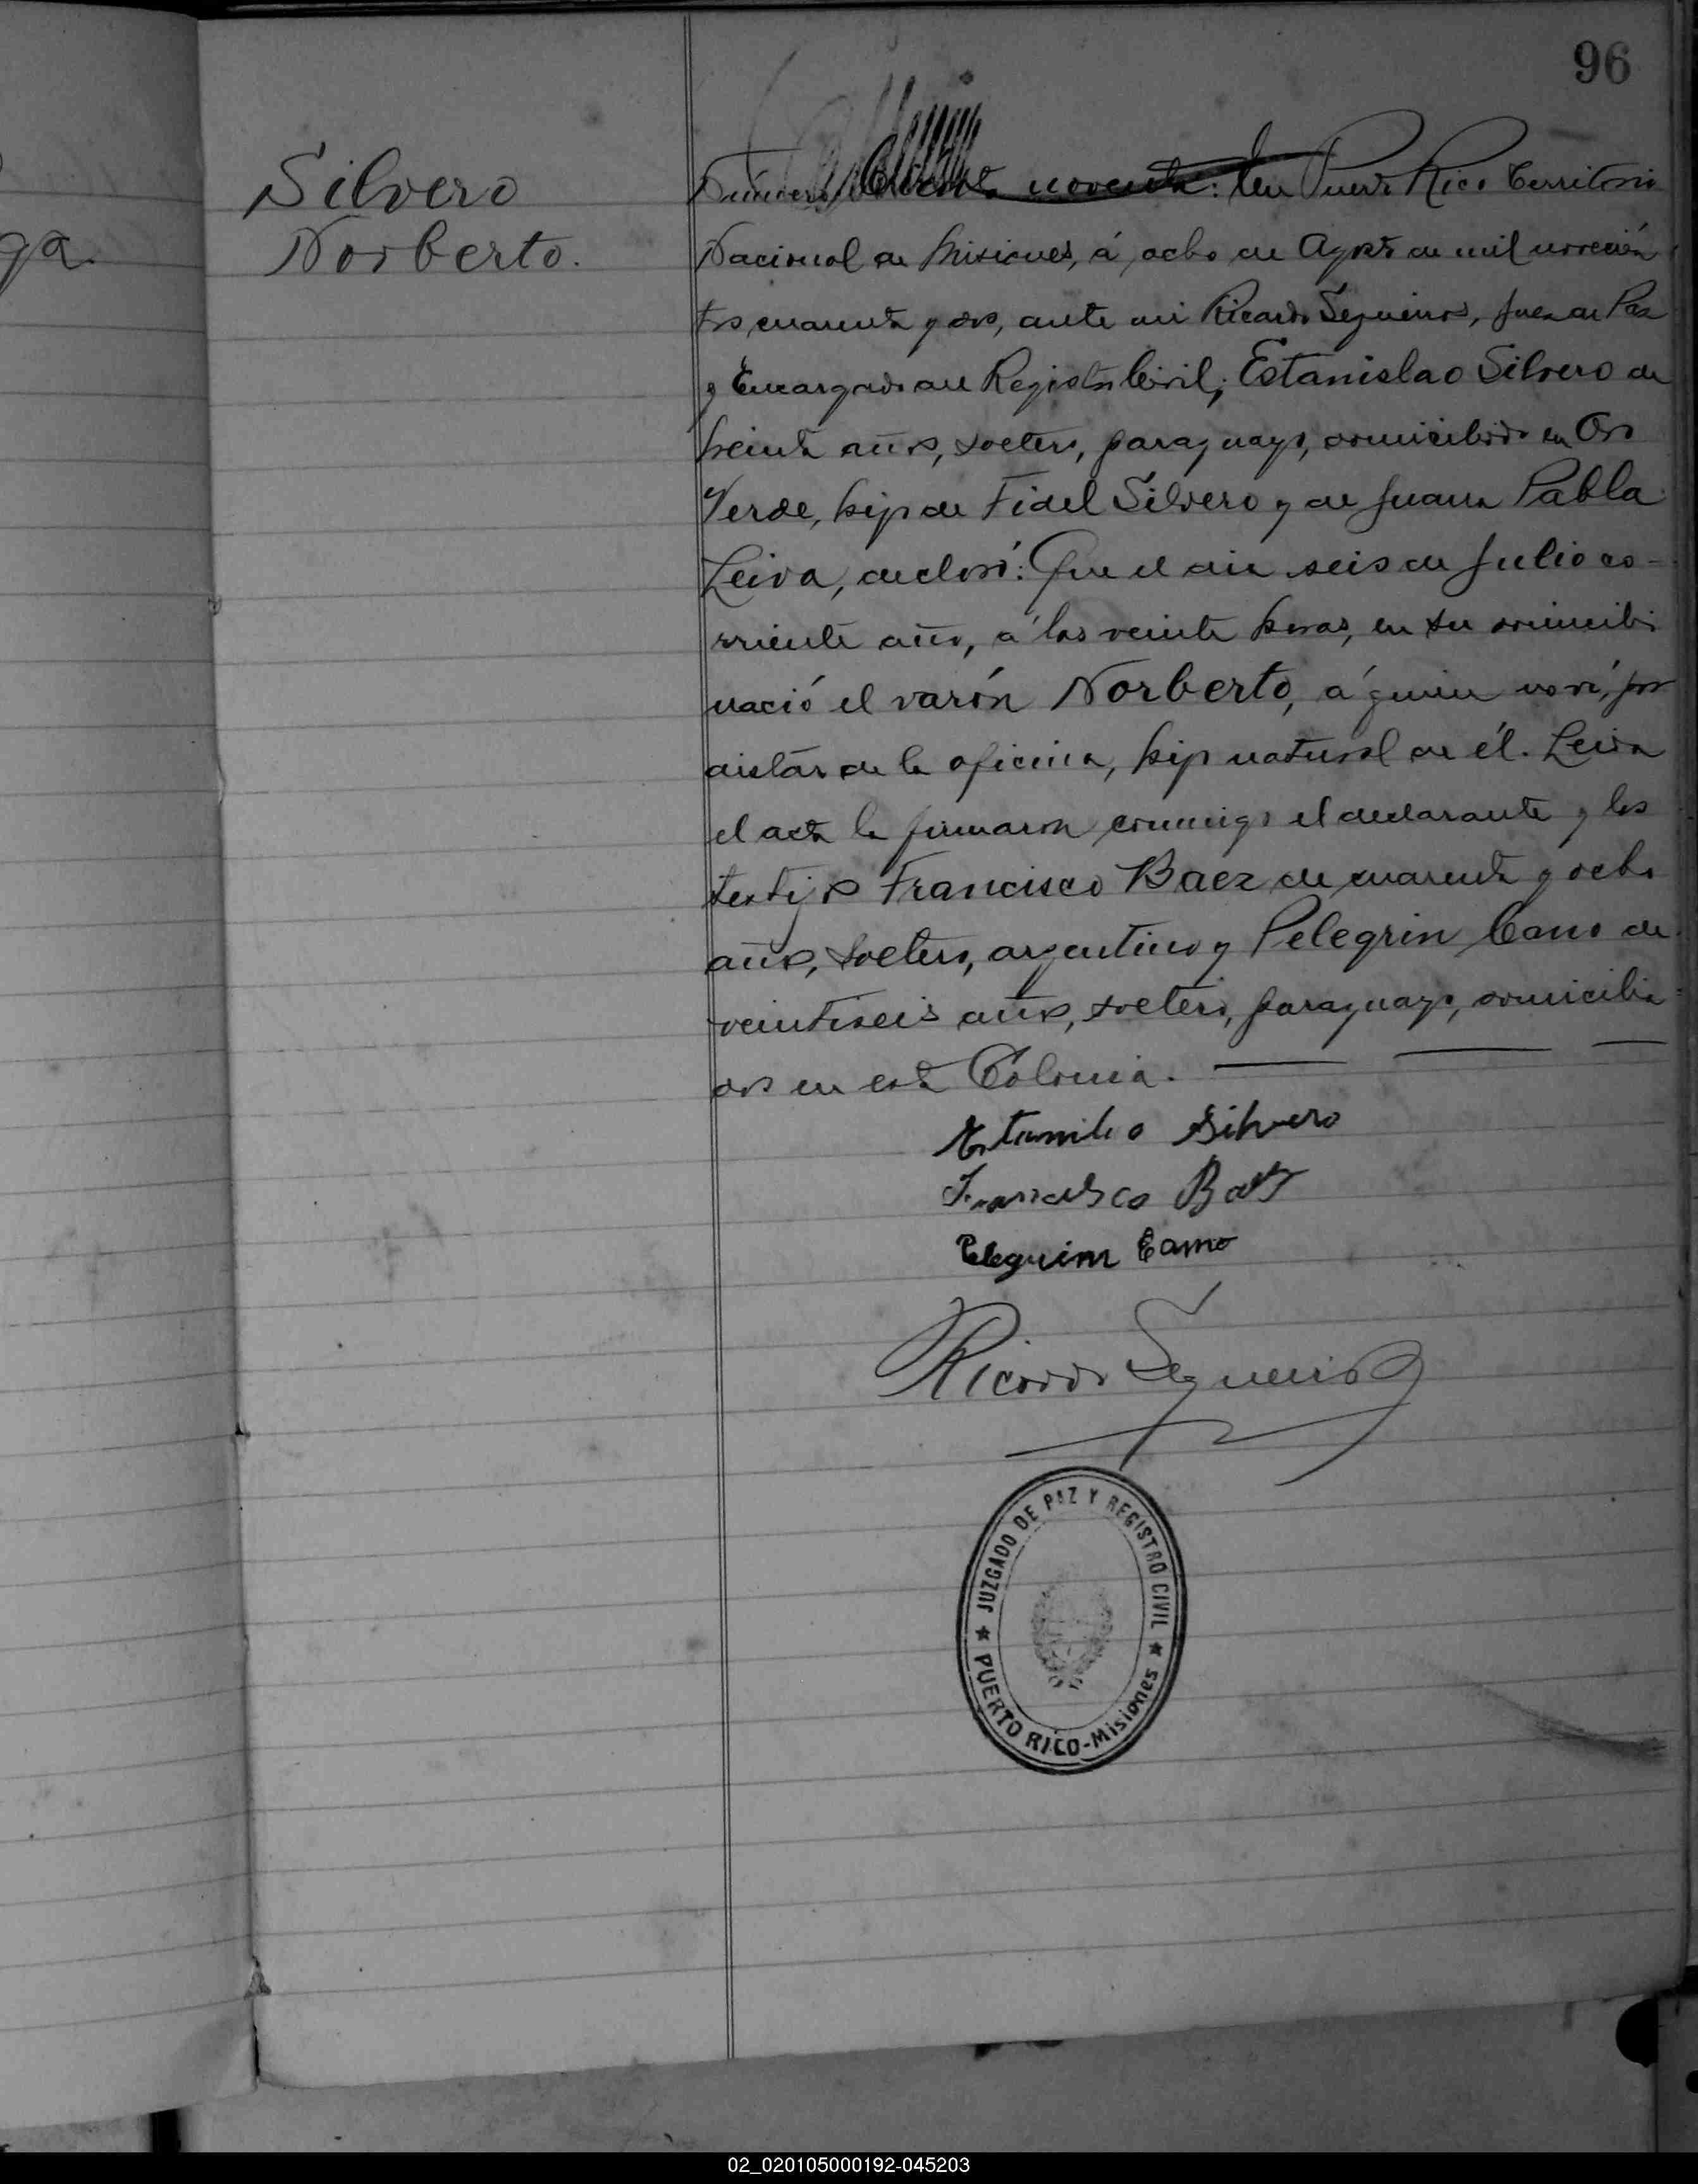 96
ga.
Silvero
Norberto.
Número noventa: En Puerto Rico Territorio
Nacional de Misiones, á ocho de Agosto de mil novecien
tos cuarenta y dos, ante mi Ricardo Segueiros, Juez de Paz
y Encargado del Registro Civil; Estanislao Silvero de
treinta años, soltero, paraguayo, domiciliado en Oro
Verde, hijo de Fidel Silvero y de Juana Pabla
Leiva, declaró: Que el dia seis de Julio co-
rriente año, á las veinte horas, en su domicilio
nació el varón Norberto, á quien no ví, por
distar de la oficina, hijo natural de él. Leida
el acta la firmaron conmigo el declarante y los
testigos Francisco Baez de cuarenta y ocho
años, soltero, argentino y Pelegrin Cano de
veintiseis años, soltero, paraguayo, domicilia-
dos en esta Colonia.
Estanilao Silvero
Francisco Baez
Peleguim Camo
Ricardo Segueiros
JUZGADO DE PAZ Y REGISTRO CIVIL
★ PUERTO RICO-Misiones ★
02_020105000192-045203